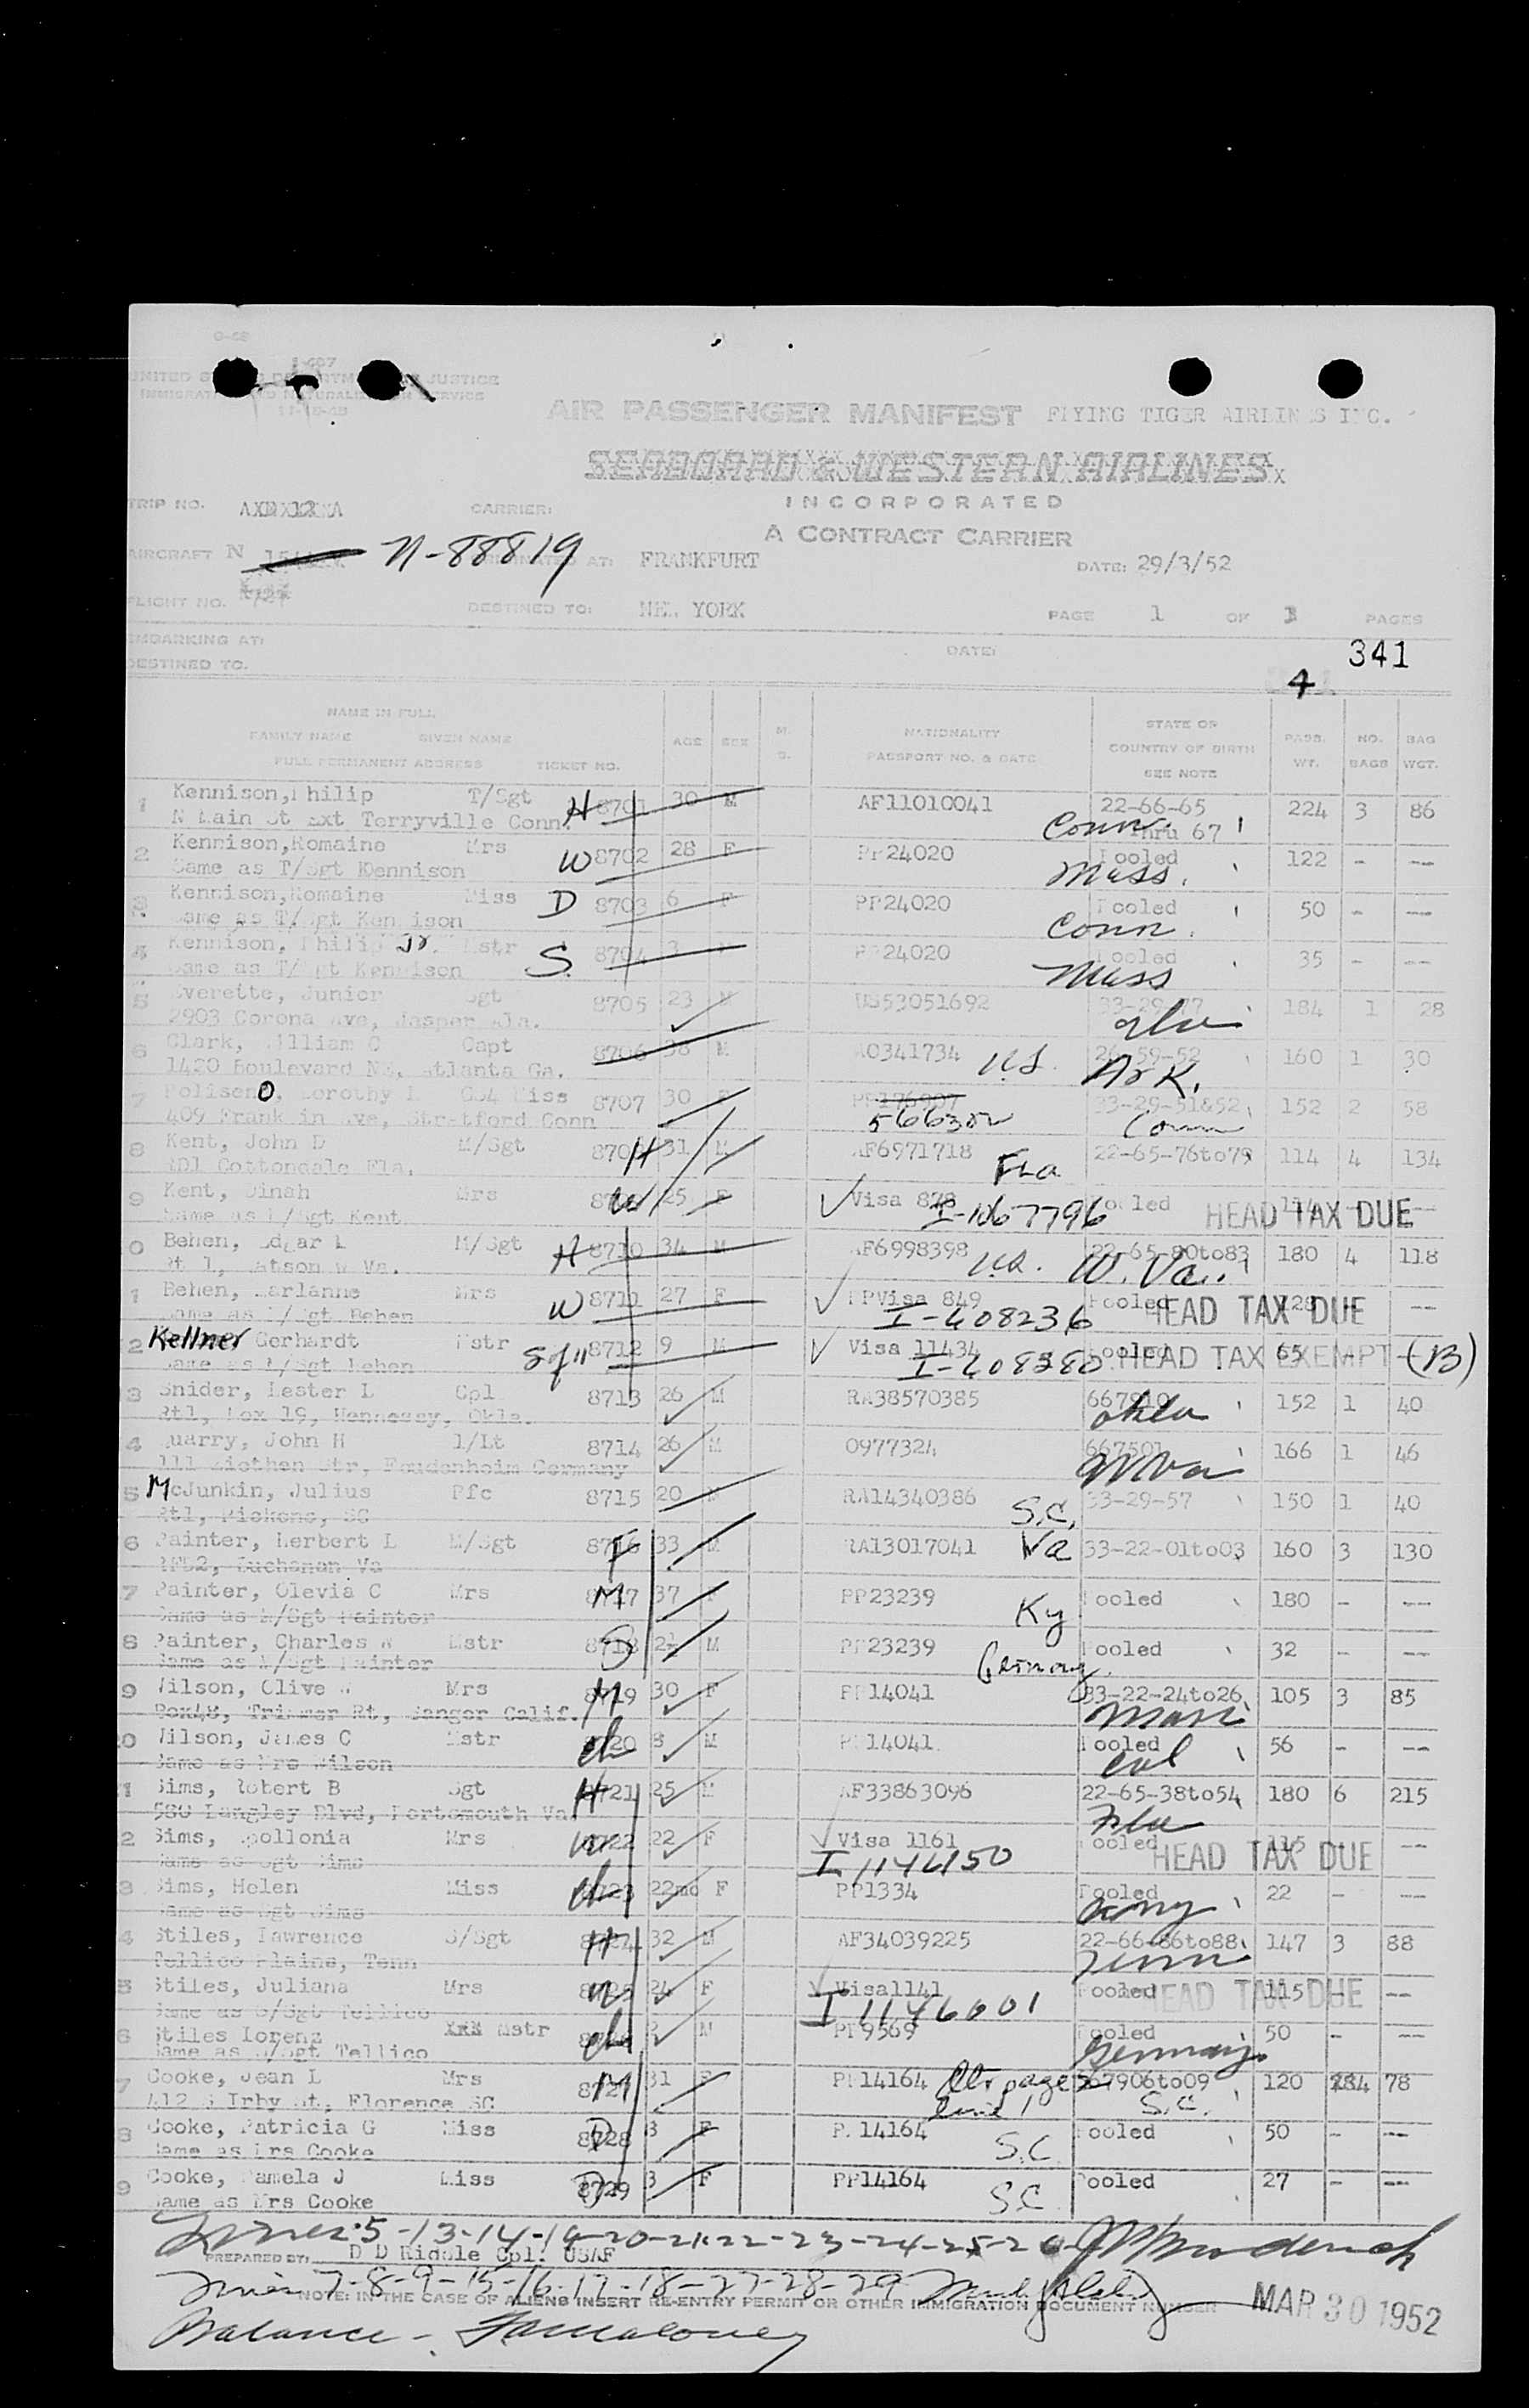 AIR PASSENGER MANIFEST FLYING TIGER AIRLINES INC.
SEABOARD & WESTERN AIRLINES
INCORPORATED
A CONTRACT CARRIER
TRIP NO. CARRIER:
AIRCRAFT N N-88819 FRANKFURT DATE: 29/3/52
FLIGHT NO. DESTINED TO: NEW YORK PAGE 1 OF PAGES
EMBARKING AT: DATE: 341
DESTINED TO. 4
NAME IN FULL NATIONALITY STATE OR PASS. NO. BAG
FAMILY NAME GIVEN NAME AGE SEX M. S. PASSPORT NO. & DATE COUNTRY OF BIRTH WT. BAGS WGT.
FULL PERMANENT ADDRESS TICKET NO. SEE NOTE
1 Kennison, Philip T/Sgt H 8701 30 M AF11010041 22-66-65 224 3 86
N Main St Ext Terryville Conn. Conn. Thru 67
2 Kennison, Romaine Mrs W 8702 28 F PP24020 Pooled 122 - --
Same as T/Sgt Kennison Mass.
3 Kennison, Romaine Miss D 8703 6 F PP24020 Pooled 50 - --
Same as T/Sgt Kennison Conn.
4 Kennison, Philip Jr. Mstr S. 8704 3 PP24020 Pooled 35 - --
Same as T/Sgt Kennison Mass
5 Everette, Junior Sgt 8705 23 M US53051692 33-29-77 184 1 28
2903 Corona Ave, Jasper Ala. Ala
6 Clark, William C Capt 8706 38 M AO341734 U.S. 26-59-52 160 1 30
1420 Boulevard NE, Atlanta Ga. Ark.
7 Poliseno, Dorothy Miss 8707 30 F 33-29-51&52 152 2 58
409 Franklin Ave, Stratford Conn Conn
8 Kent, John D M/Sgt 8708 H 31 M AF6971718 Fla 22-65-76to79 114 4 134
RD1 Cottondale Fla.
9 Kent, Dinah Mrs W 25 F Visa 878 Pooled HEAD TAX DUE
Same as M/Sgt Kent I-1067796
0 Behen, Edgar L M/Sgt H 8710 34 M AF6998398 U.S. 22-65-80to83 180 4 118
Rt 1, Watson W Va. W. Va.
1 Behen, Marianne Mrs W 8711 27 F PPVisa 849 Pooled 128 --
Same as M/Sgt Behen I-408236 HEAD TAX DUE
2 Kellner Gerhardt Mstr S of 11 8712 9 M Visa 11434 Pooled 65
Same as M/Sgt Behen I-408380 HEAD TAX EXEMPT (B)
3 Snider, Lester L Cpl 8713 26 M RA38570385 667910 152 1 40
Rt1, Box 19, Hennessy, Okla. Okla
4 Quarry, John H 1/Lt 8714 26 M 0977324 667501 166 1 46
111 Ziethen Str, Feudenheim Germany W Va
5 McJunkin, Julius Pfc 8715 20 M RA14340386 S.C. 33-29-57 150 1 40
Rt1, Pickens, SC
6 Painter, Herbert L M/Sgt 8716 F 33 M RA13017041 Va 33-22-01to03 160 3 130
RFD2, Buchanan Va
7 Painter, Olevia C Mrs 8717 M 37 F PP23239 Ky Pooled 180 - --
Same as M/Sgt Painter
8 Painter, Charles W Mstr 8718 S 2½ M PP23239 Germany Pooled 32 - --
Same as M/Sgt Painter
9 Wilson, Olive W Mrs 8719 M 30 F PP14041 33-22-24to26 105 3 85
Box48, Trimmer Rt, Sanger Calif. Mass
0 Wilson, James C Mstr 8720 ch 8 M PP14041 Pooled 56 - --
Same as Mrs Wilson Cal
1 Sims, Robert B Sgt 8721 H 25 M AF33863096 22-65-38to54 180 6 215
580 Langley Blvd, Portsmouth Va. Fla
2 Sims, Apollonia Mrs 8722 W 22 F Visa 1161 Pooled 115 --
Same as Sgt Sims HEAD TAX DUE
3 Sims, Helen Miss 8723 ch 22mo F PP1334 Pooled 22 - --
Same as Sgt Sims Germany
4 Stiles, Lawrence S/Sgt 8724 H 32 M AF34039225 22-66-86to88 147 3 88
Tellico Plains, Tenn Tenn
5 Stiles, Juliana Mrs 8725 W 24 F Visa1141 Pooled 115 - --
Same as S/Sgt Tellico I 1146601 HEAD TAX DUE
6 Stiles Lorenz Mstr ch 2 M PP9569 Pooled 50 - --
Same as S/Sgt Tellico Germany
7 Cooke, Jean L Mrs 8727 M 31 F PP14164 667906to09 120 78
412 S Irby St, Florence SC S.C.
8 Cooke, Patricia G Miss 8728 D 8 F PP14164 Pooled 50 - --
Same as Mrs Cooke S.C
9 Cooke, Pamela J Miss 8729 D 3 F PP14164 Pooled 27 - --
Same as Mrs Cooke S.C
Lines 5-13-14-19-20-21-22-23-24-25-26
PREPARED BY: D D Riddle Cpl. USAF
Lines 7-8-9-15-16-17-18-27-28-29
NOTE: IN THE CASE OF ALIENS INSERT RE-ENTRY PERMIT OR OTHER IMMIGRATION DOCUMENT NUMBER MAR 30 1952
Balance -